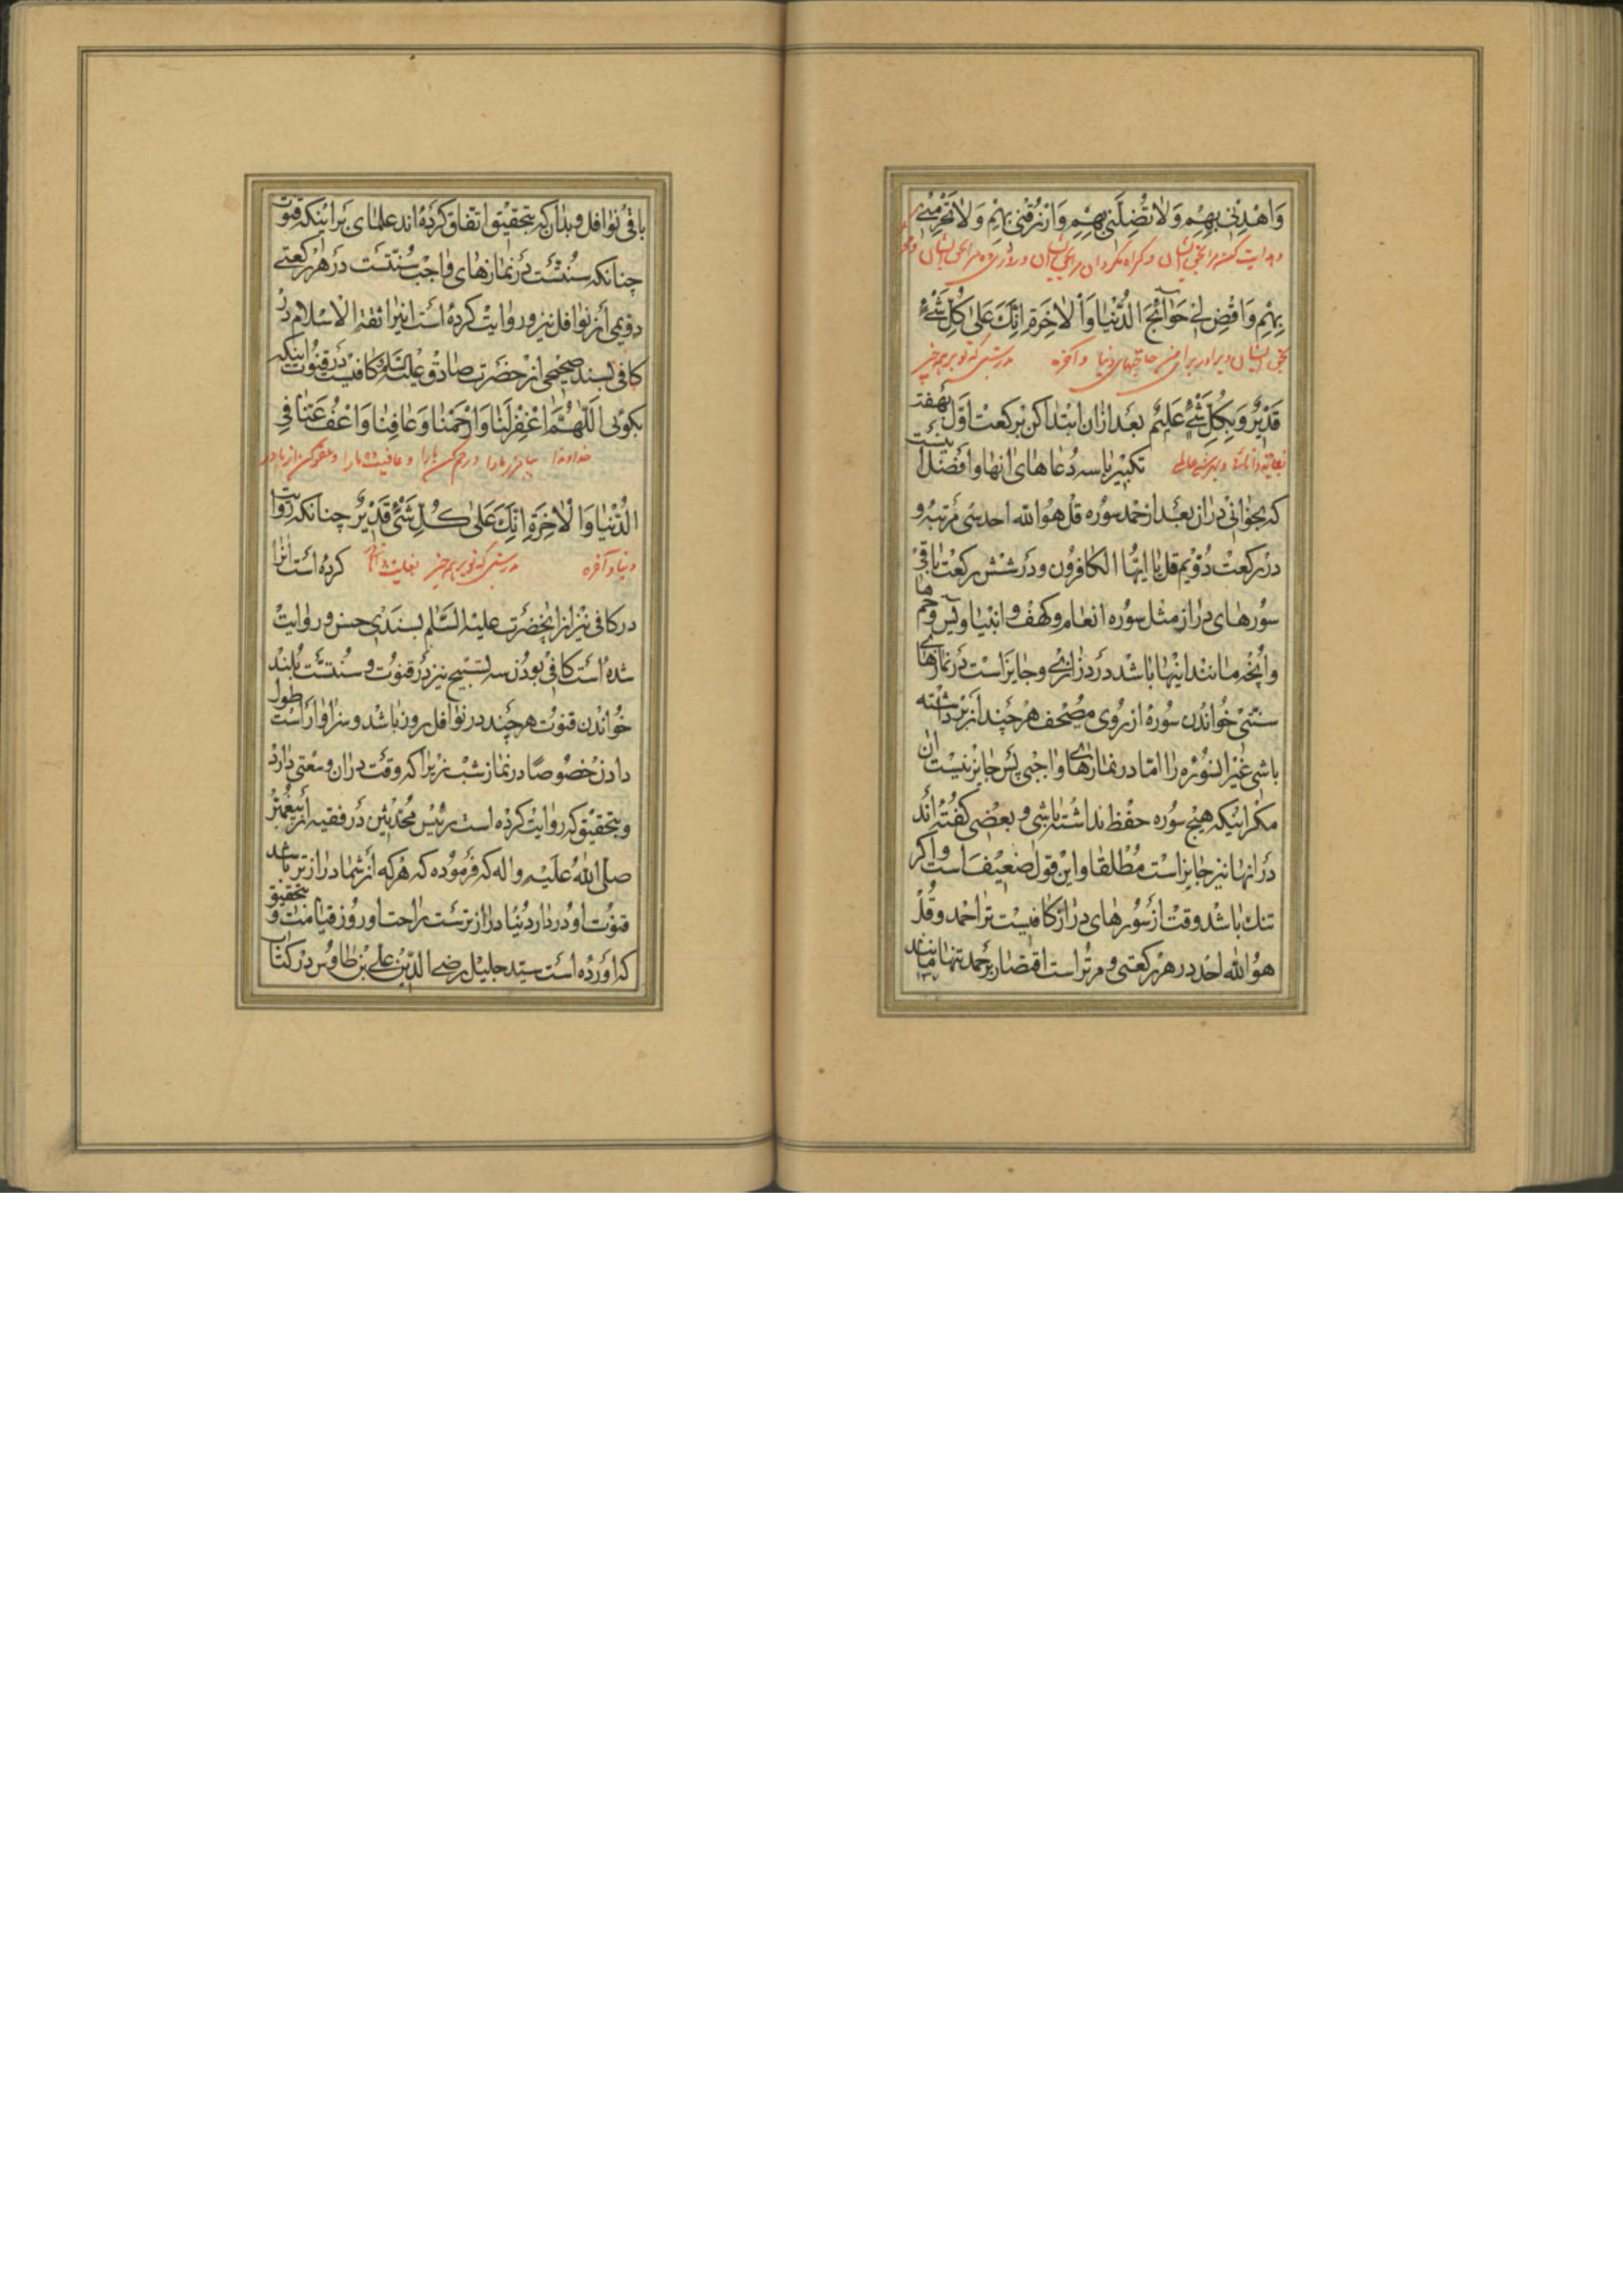 وَاهْدِنِی بِهِمْ وَلَا تُضِلَّنِی بِهِمْ وَارْزُقْنِی بِهِمْ وَلَا تَحْرِمْنِی
و هدایت کن مرا بحق ایشان و گمراه مگردان مرا بحق ایشان و روزی ده مرا بحق ایشان
بِهِمْ وَاقْضِ لِی حَوَائِجَ الدُّنْیَا وَالْاٰخِرَةِ اِنَّكَ عَلیٰ کُلِّ شَیْءٍ
بحق ایشان و برآور برای من حاجتهای دنیا و آخره بدرستی که تو بر همه چیز
قَدِیْرٌ وَبِکُلِّ شَیْءٍ عَلِیْمٌ بعد ازان ابتدا کن برکعت اوّل بهفت
تکبیر با سه دعاهای انها و افضل انیست
که بخوانی دران بعد از حمد سوره قل هو الله احد سی مرتبه و
در رکعت دویم قل یا ایها الکافرون و در شش رکعت باقی
سورهای دراز مثل سوره انعام و کهف و انبیا و یس و حمها
و آنچه مانند اینها باشد در درازی و جایز است در نمازهای
سنتی خواندن سوره از روی مصحف هر چند از بر داشته
باشی غیر ان سوره را اما در نمازهای واجبی پس جایز نیست ان
مکر اینکه هیچ سوره حفظ نداشته باشی و بعضی کفته اند
در انها نیز جایز است مطلقا و این قول ضعیف است و اکر
تنك باشد وقت از سورهای دراز کافیست ترا حمد و قل
هو الله احد در هر رکعتی و مر تراست اقتصار بر حمد تنها مانند
۱۳۷
باقی نوافل و بدان که بتحقیق اتفاق کرده اند علمای بر اینکه قنوت
چنانکه سنتست در نمازهای واجب سنتست در هر رکعتی
دویمی از نوافل نیز و روایت کرده است انرا ثقة الاسلام در
کافی بسند صحیحی از حضرت صادق علیه السلم و کافیست در قنوت اینکه
بکوئی اَللّٰهُمَّ اغْفِرْلَنَا وَارْحَمْنَا وَعَافِنَا وَاعْفُ عَنَّا فِی
خداوندا بیامرز ما را و رحم کن ما را و عافیت ده ما را و عفو کن از ما در
الدُّنْیَا وَالْاٰخِرَةِ اِنَّكَ عَلیٰ کُلِّ شَیْءٍ قَدِیْرٌ چنانکه روایت
دنیا و آخره بدرستی که تو بر همه چیز کرده است انرا
در کافی نیز از انحضرت علیه السّلم بسندی حسن و روایت
شده است کافی بودن سه تسبیح نیز در قنوت و سنتست بلند
خواندن قنوت هر چند در نوافل روز باشد و سزاوار است طول
دادن خصوصًا در نماز شب زیرا که وقت دران وسعتی دارد
و بتحقیق که روایت کرده است رئیس محدثین در فقیه از پیغمبر
صلی الله علیه و اله که فرموده که هر که از شما دراز تر باشد
قنوت او در دار دنیا دراز تر ست راحت او روز قیامت و بتحقیق
که اورده است سیّد جلیل رضی الدین علی بن طاوس در کتاب